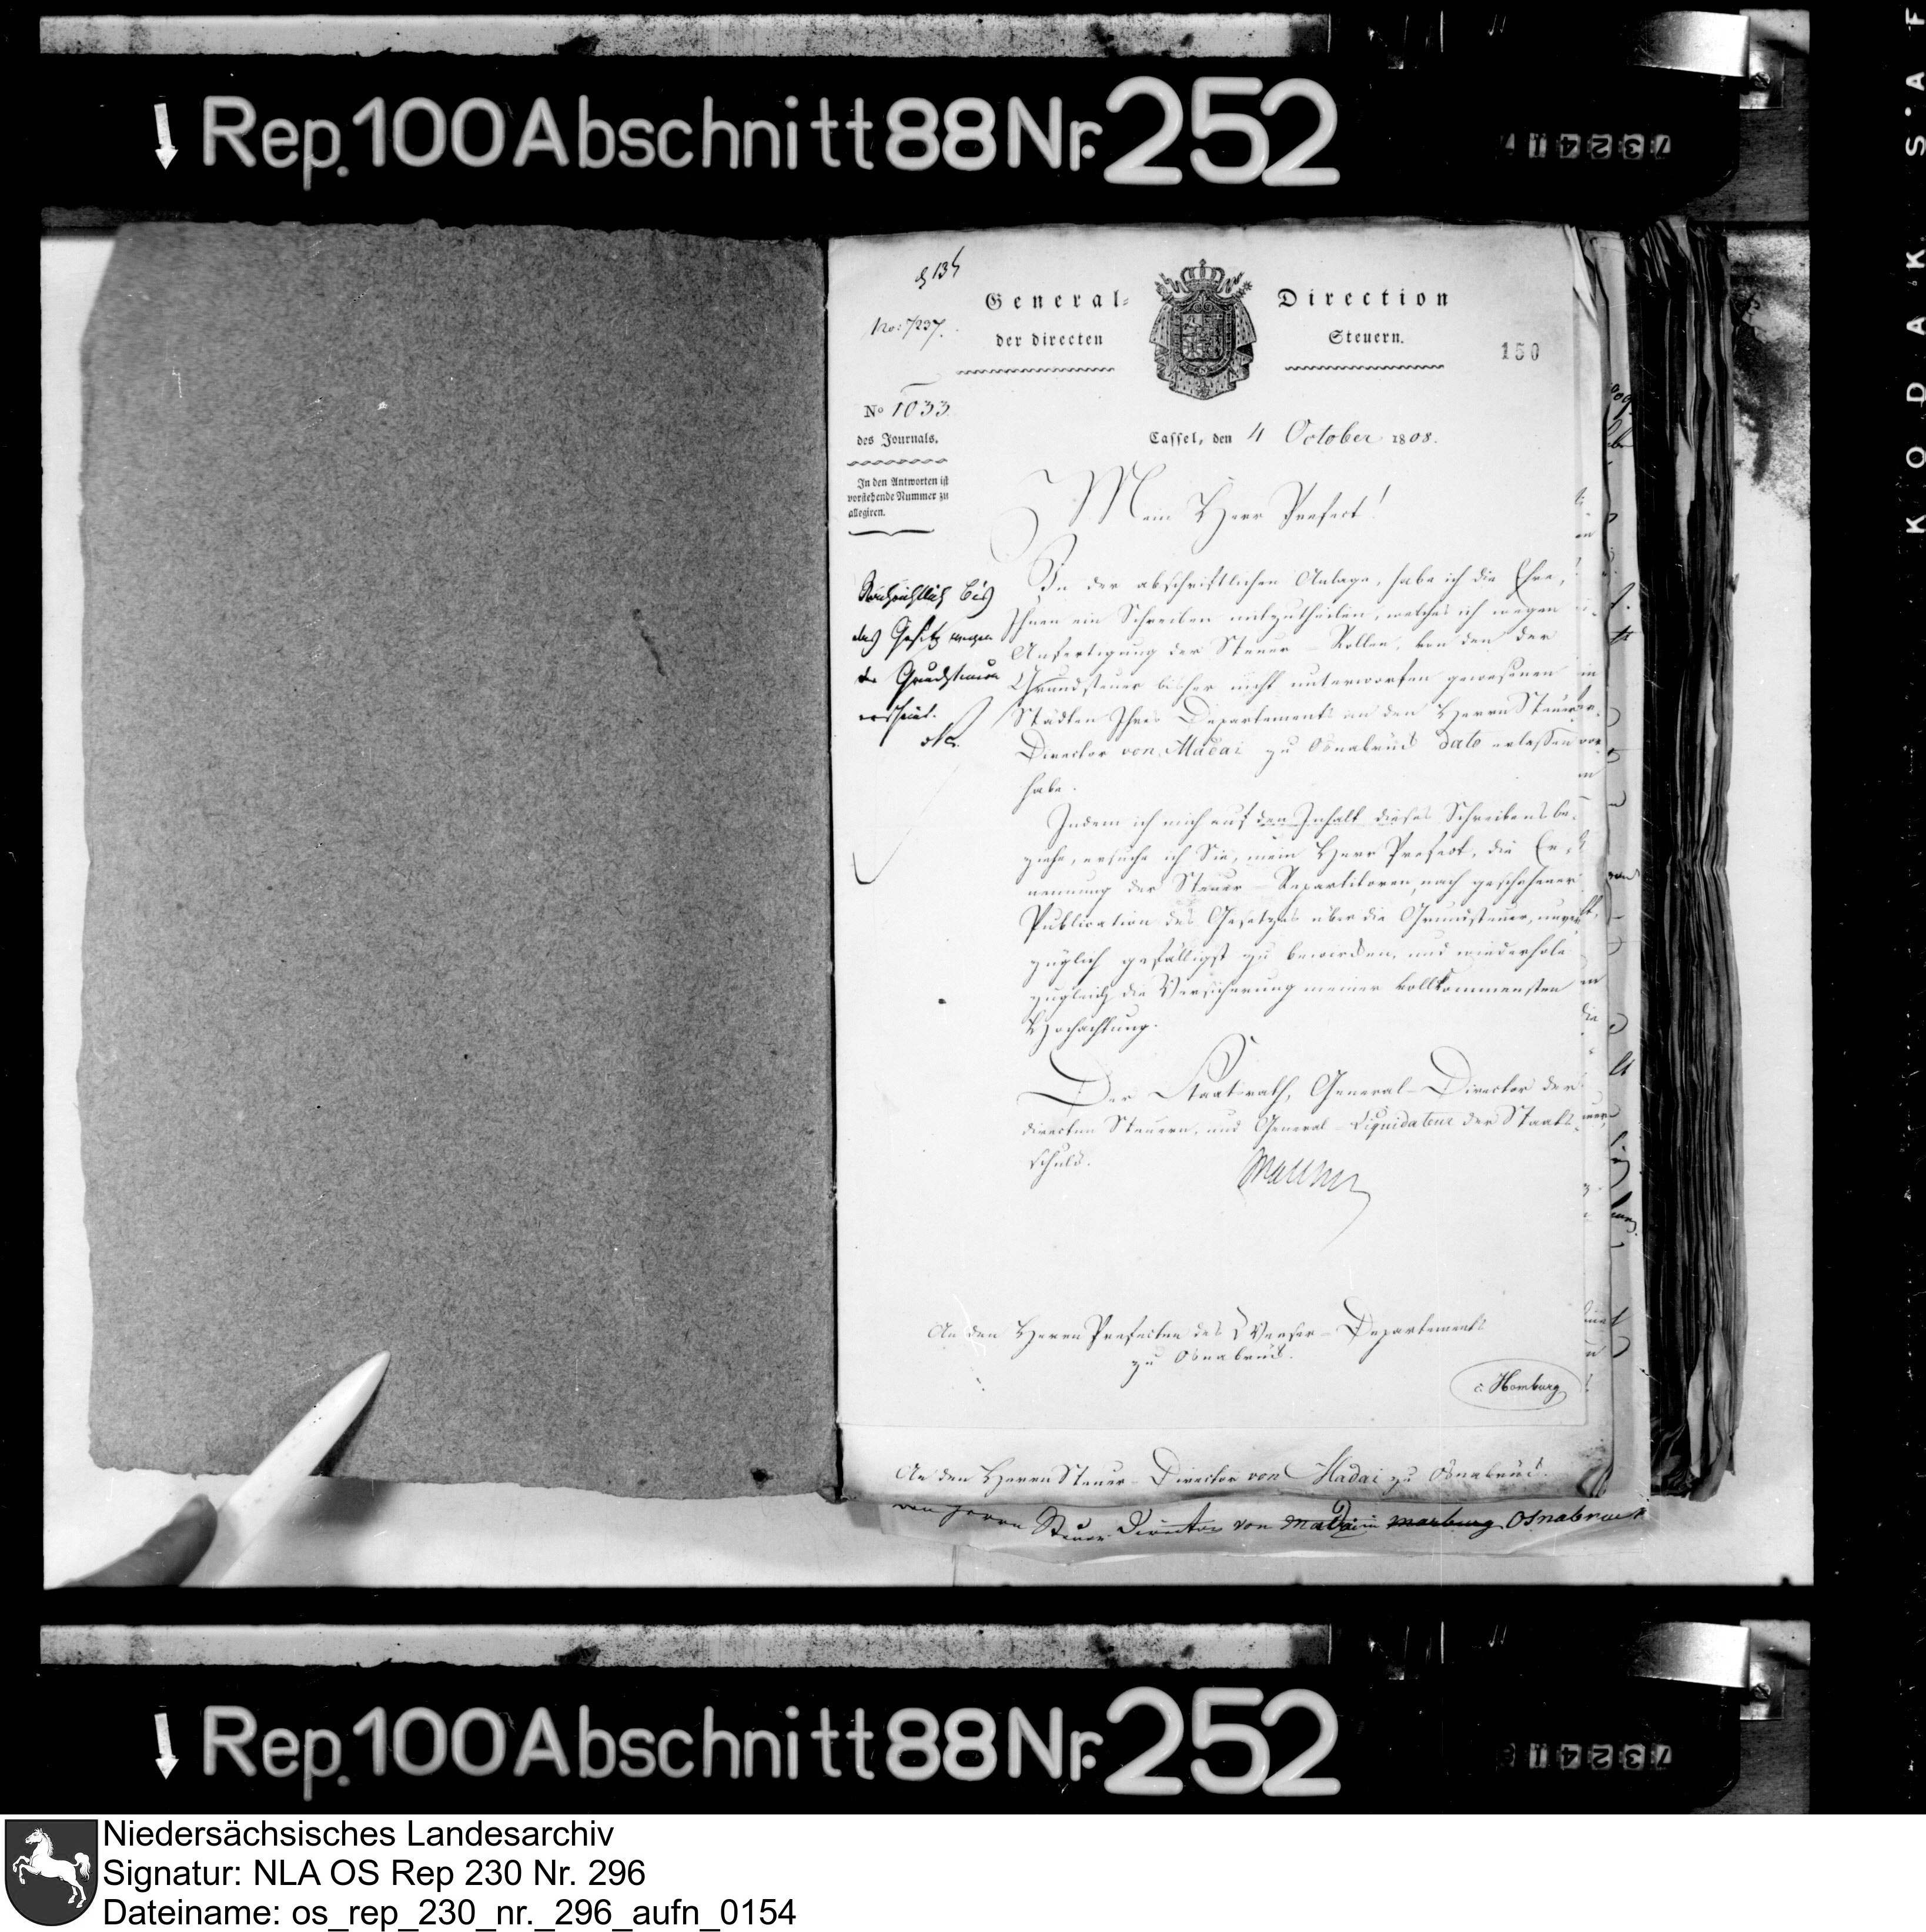 Rep. 100 Abschnitt 88 Nr. 252
General-Direction
der directen Steuern.
150
No: 7237.
No 1033.
des Journals.
In den Antworten ist
vorstehende Nummer zu
allegiren.
Cassel, den 4 October 1808.
Mein Herr Prefect!
In der abschriftlichen Anlage, habe ich die Ehre,
Ihnen ein Schreiben mitzutheilen, welches ich wegen
Anfertigung der Steuer-Rollen, von den der
Grundsteuer bisher nicht unterworfen gewesenen
Städten Ihres Departements an den Herrn Steuer-
Director von Madai zu Osnabrück dato erlassen
habe.
Indem ich mich auf den Inhalt dieses Schreibens be-
ziehe, ersuche ich Sie, mein Herr Prefect, die Er-
nennung der Steuer-Repartitoren, nach geschehener
Publication des Gesetzes über die Grundsteuer, unver-
züglich gefälligst zu bewirken, und wiederhole
zugleich die Versicherung meiner vollkommensten
Hochachtung.
Der Staatsrath, General-Director der
directen Steuern, und General-Liquidateur der Staats-
schuld.
Malchus
bis
das Gesetz wegen
der Grundsteuer
erscheint.
An den Herrn Prefecten des Weser-Departements
zu Osnabrück.
c. Homburg
An den Herrn Steuer-Director von Madai zu Osnabrück.
den Herrn Steuer Director von Madai in Marburg Osnabrück
KODAK SAF
Rep. 100 Abschnitt 88 Nr. 252
Niedersächsisches Landesarchiv
Signatur: NLA OS Rep 230 Nr. 296
Dateiname: os_rep_230_nr._296_aufn_0154